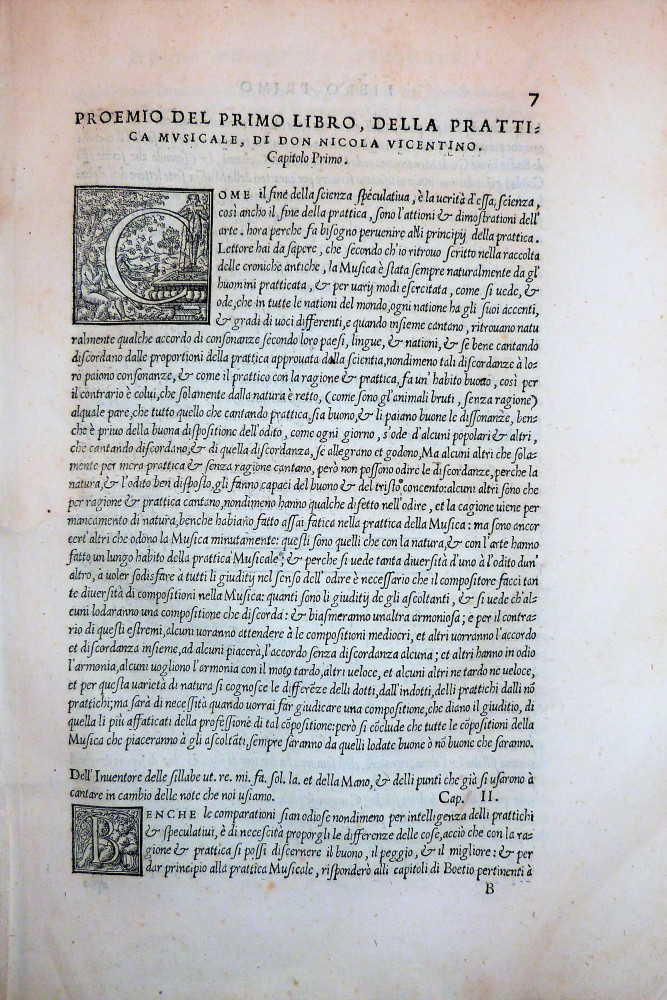 7
PROEMIO DEL PRIMO LIBRO, DELLA PRATTI=
CA MVSICALE, DI DON NICOLA VICENTINO.
Capitolo Primo.
COME il fine della scienza speculatiua, è la uerità d'essa, scienza,
così ancho il fine della prattica, sono l'attioni & dimostrationi dell'
arte. hora perche fa bisogno peruenire alli principij della prattica.
Lettore hai da sapere, che secondo ch'io ritrouo scritto nella raccolta
delle croniche antiche, la Musica è stata sempre naturalmente da gl'
huomini pratticata, & per uarij modi esercitata, come si uede, &
ode, che in tutte le nationi del mondo, ogni natione ha gli suoi accenti,
& gradi di uoci differenti, e quando insieme cantano, ritrouano natu
ralmente qualche accordo di consonanze secondo loro paesi, lingue, & nationi, & se bene cantando
discordano dalle proportioni della prattica approuata dalla scientia, nondimeno tali discordanze à lo-
ro paiono consonanze, & come il prattico con la ragione & prattica, fa un' habito buono, così per
il contrario è colui, che solamente dalla natura è retto, (come sono gl'animali bruti, senza ragione)
alquale pare, che tutto quello che cantando prattica, sia buono, & li paiano buone le dissonanze, ben-
che è priuo della buona dispositione dell'odito, come ogni giorno, s'ode d'alcuni popolari & altri,
che cantando discordano, & di quella discordanza, se allegrano et godono, Ma alcuni altri che sola-
mente per mera prattica & senza ragione cantano, però non possono odire le discordanze, perche la
natura, & l'odito ben disposto, gli fanno capaci del buono & del tristo concento: alcuni altri sono che
per ragione & prattica cantano, nondimeno hanno qualche difetto nell'odire, et la cagione uiene per
mancamento di natura, benche habiano fatto assai fatica nella prattica della Musica: ma sono ancor
cert'altri che odono la Musica minutamente: questi sono quelli che con la natura, & con l'arte hanno
fatto un lungo habito della prattica Musicale; & perche si uede tanta diuersità d'uno à l'odito dun'
altro, à uoler sodisfare à tutti li giuditij nel senso dell' odire è necessario che il compositore facci tan
te diuersità di compositioni nella Musica: quanti sono li giuditij de gli ascoltanti, & si uede ch'al-
cuni lodaranno una compositione che discorda: & biasmeranno unaltra armoniosa; e per il contra-
rio di questi estremi, alcuni uoranno attendere à le compositioni mediocri, et altri uorranno l'accordo
et discordanza insieme, ad alcuni piacerà, l'accordo senza discordanza alcuna; et altri hanno in odio
l'armonia, alcuni uogliono l'armonia con il moto tardo, altri ueloce, et alcuni altri ne tardo ne ueloce,
et per questa varietà di natura si cognosce le differẽze delli dotti, dall'indotti, delli prattichi dalli nõ
prattichi; ma sarà di necessità quando uorrai far giudicare una compositione, che diano il giuditio, di
quella li più affaticati della professione di tal cõpositione: però si cõclude che tutte le cõpositioni della
Musica che piaceranno à gli ascoltãti, sempre saranno da quelli lodate buone ò nõ buone che saranno.
Dell' Inuentore delle sillabe ut. re. mi. fa. sol. la. et della Mano, & delli punti che già si usarono à
cantare in cambio delle note che noi usiamo. Cap. II.
BENCHE le comparationi sian odiose nondimeno per intelligenza delli prattichi
& speculatiui, è di necescità proporgli le differenze delle cose, acciò che con la ra-
gione & prattica si possi discernere il buono, il peggio, & il migliore: & per
dar principio alla prattica Musicale, risponderò alli capitoli di Boetio pertinenti à
B